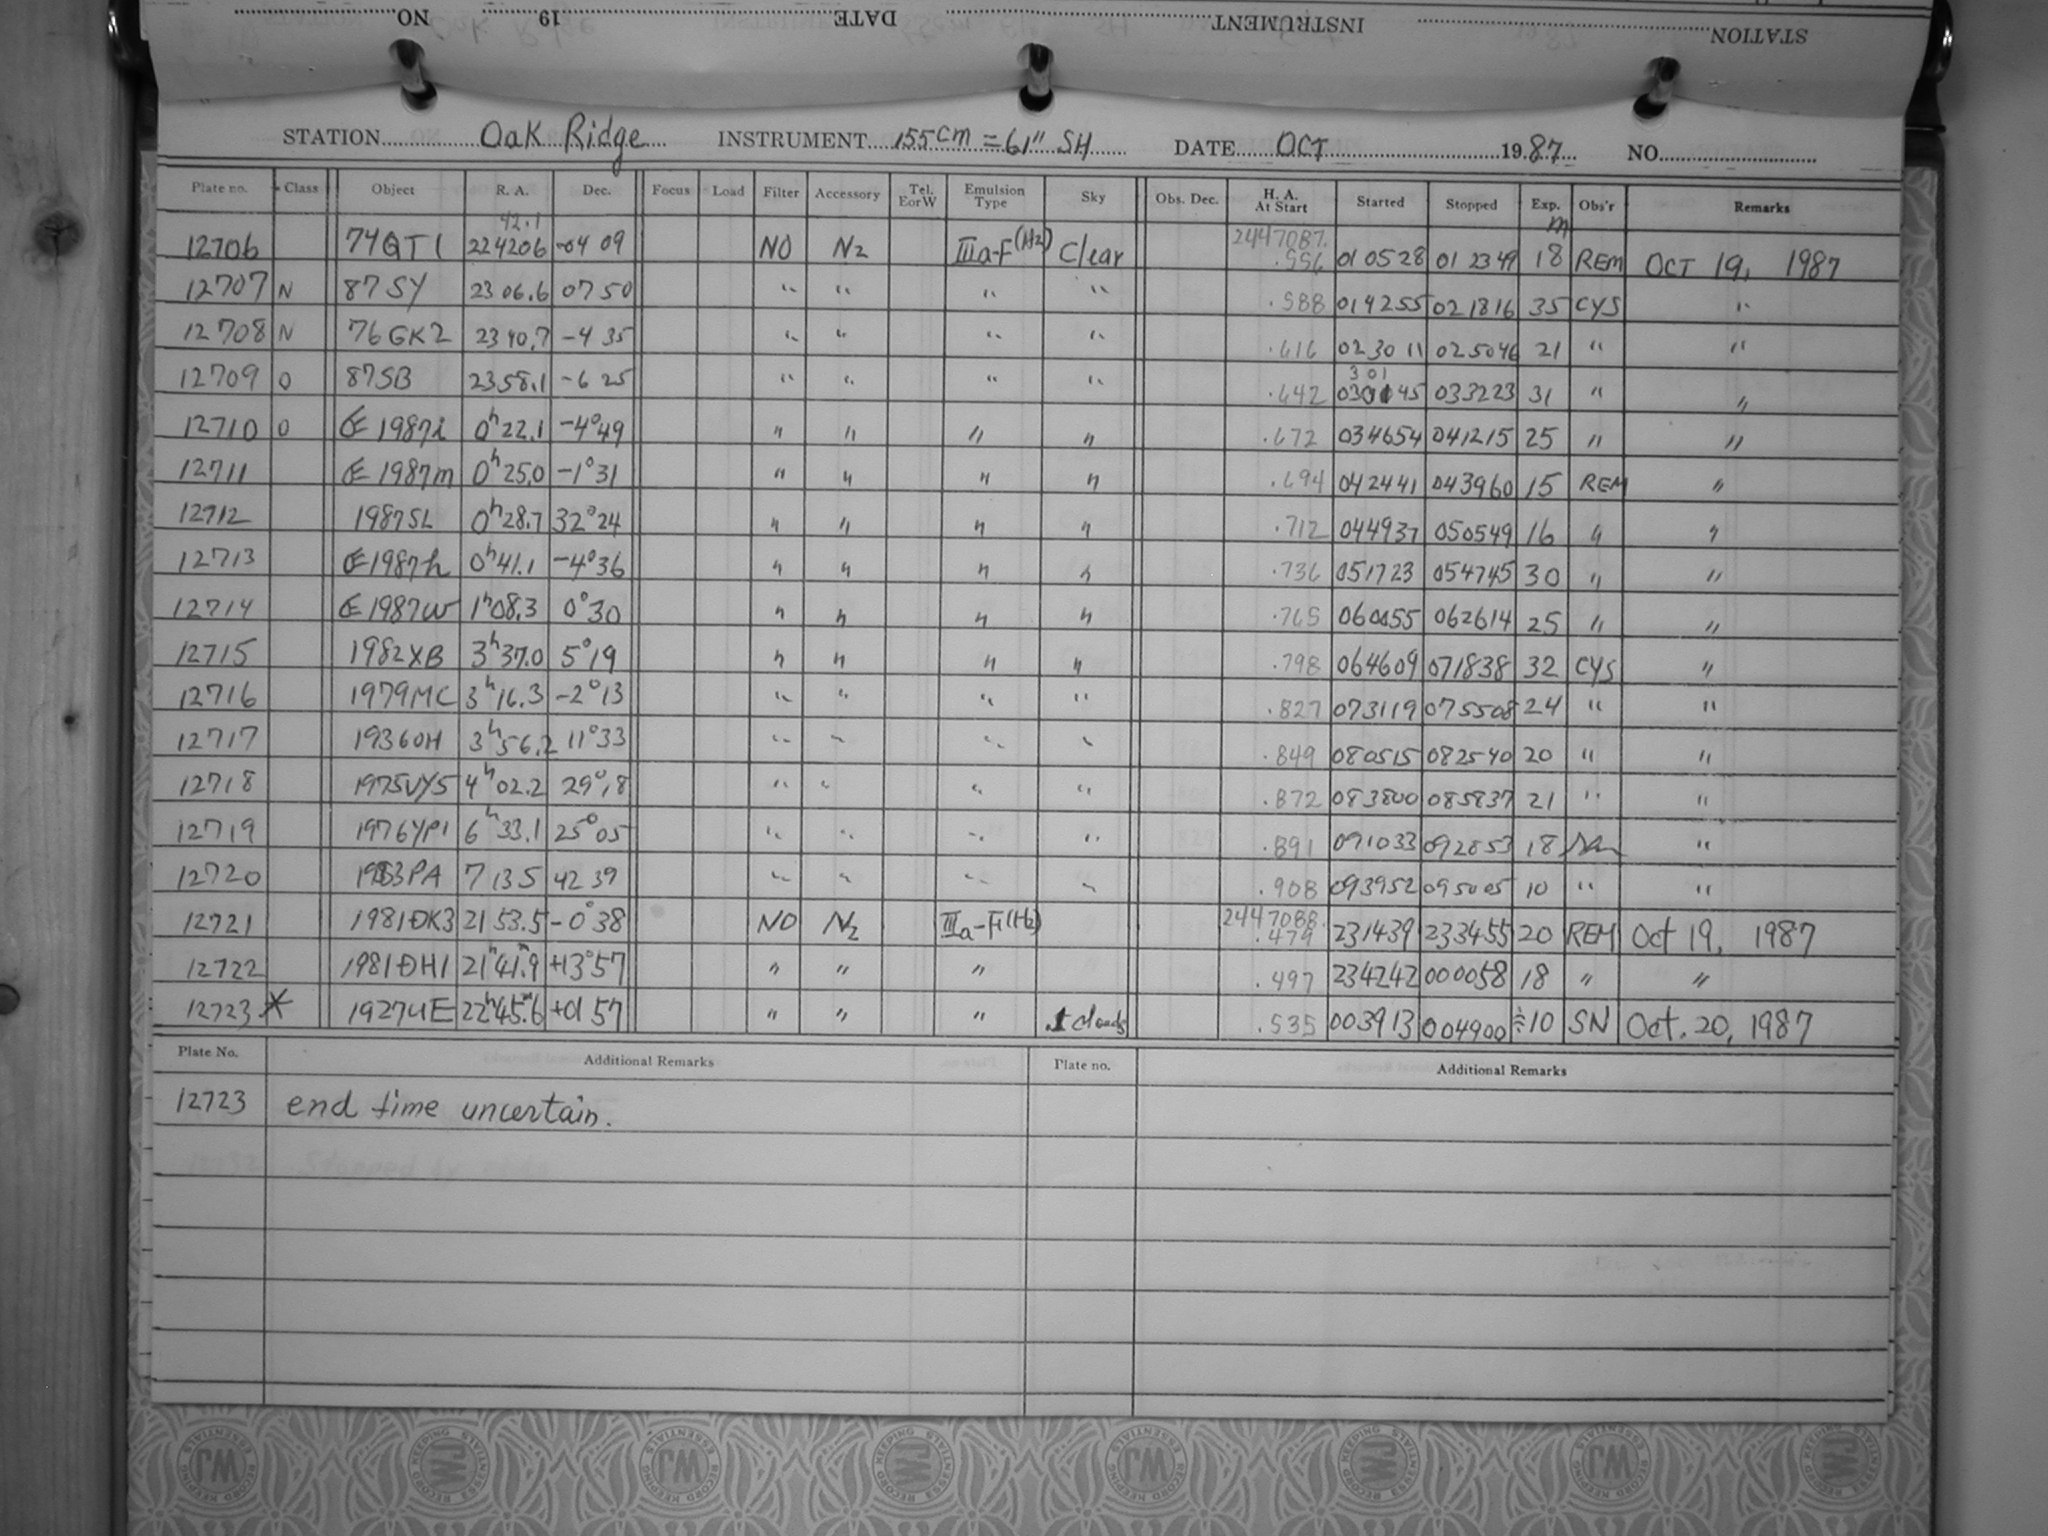 STATION INSTRUMENT DATE 19 NO
STATION Oak Ridge INSTRUMENT 155cm = 61" SH DATE OCT 1987 NO
Plate no. Class Object R. A. Dec. Focus Load Filter Accessory Tel. EorW Emulsion Type Sky Obs. Dec. H. A. At Start Started Stopped Exp. Obs'r Remarks
42.1 2447087. m
12706 74QT1 224206 -04 09 NO N2 IIIa-F(H2) Clear .556 010528 012349 18 REM OCT 19, 1987
12707 N 87SY 2306.6 07 50 " " " " .588 014255 021816 35 CYS "
12708 N 76GK2 2340.7 -4 35 " " " " .616 023011 025046 21 " "
301
12709 O 87SB 2358.1 -6 25 " " " " .642 030145 033223 31 " "
12710 O 1987i 0h22.1 -4°49 " " " " .672 034654 041215 25 " "
12711 1987m 0h25.0 -1°31 " " " " .694 042441 043960 15 REM "
12712 1987SL 0h28.7 32°24 " " " " .712 044937 050549 16 " "
12713 1987h 0h41.1 -4°36 " " " " .736 051723 054745 30 " "
12714 1987w 1h08.3 0°30 " " " " .765 060055 062614 25 " "
12715 1982XB 3h37.0 5°19 " " " " .798 064609 071838 32 CYS "
12716 1979MC 3h16.3 -2°13 " " " " .827 073119 075508 24 " "
12717 1936OH 3h56.2 11°33 " " " " .849 080515 082540 20 " "
12718 1975VY5 4h02.2 29°18 " " " " .872 083800 085837 21 " "
12719 1976YP1 6h33.1 25°05 " " " " .891 091033 092853 18 "
12720 1983PA 7 13 5 42 39 " " " " .908 093952 095005 10 " "
2447088.
12721 1981DK3 21 53.5 -0°38 NO N2 IIIa-F(H2) .479 231439 233455 20 REM Oct 19, 1987
12722 1981DH1 21h41.9 +13°57 " " " .497 234242 000058 18 " "
12723 * 1927UE 22h45.6 +01 57 " " " clouds .535 003913 004900 ÷10 SN Oct. 20, 1987
Plate No. Additional Remarks Plate no. Additional Remarks
12723 end time uncertain.
WJ RECORD KEEPING ESSENTIALS